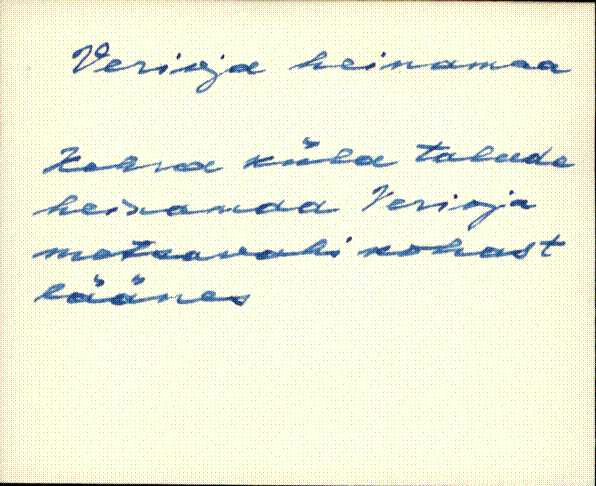 Verioja heinamaa
Kahva küla talude
heinamaa Verioja
metsavahi kohast
läänes